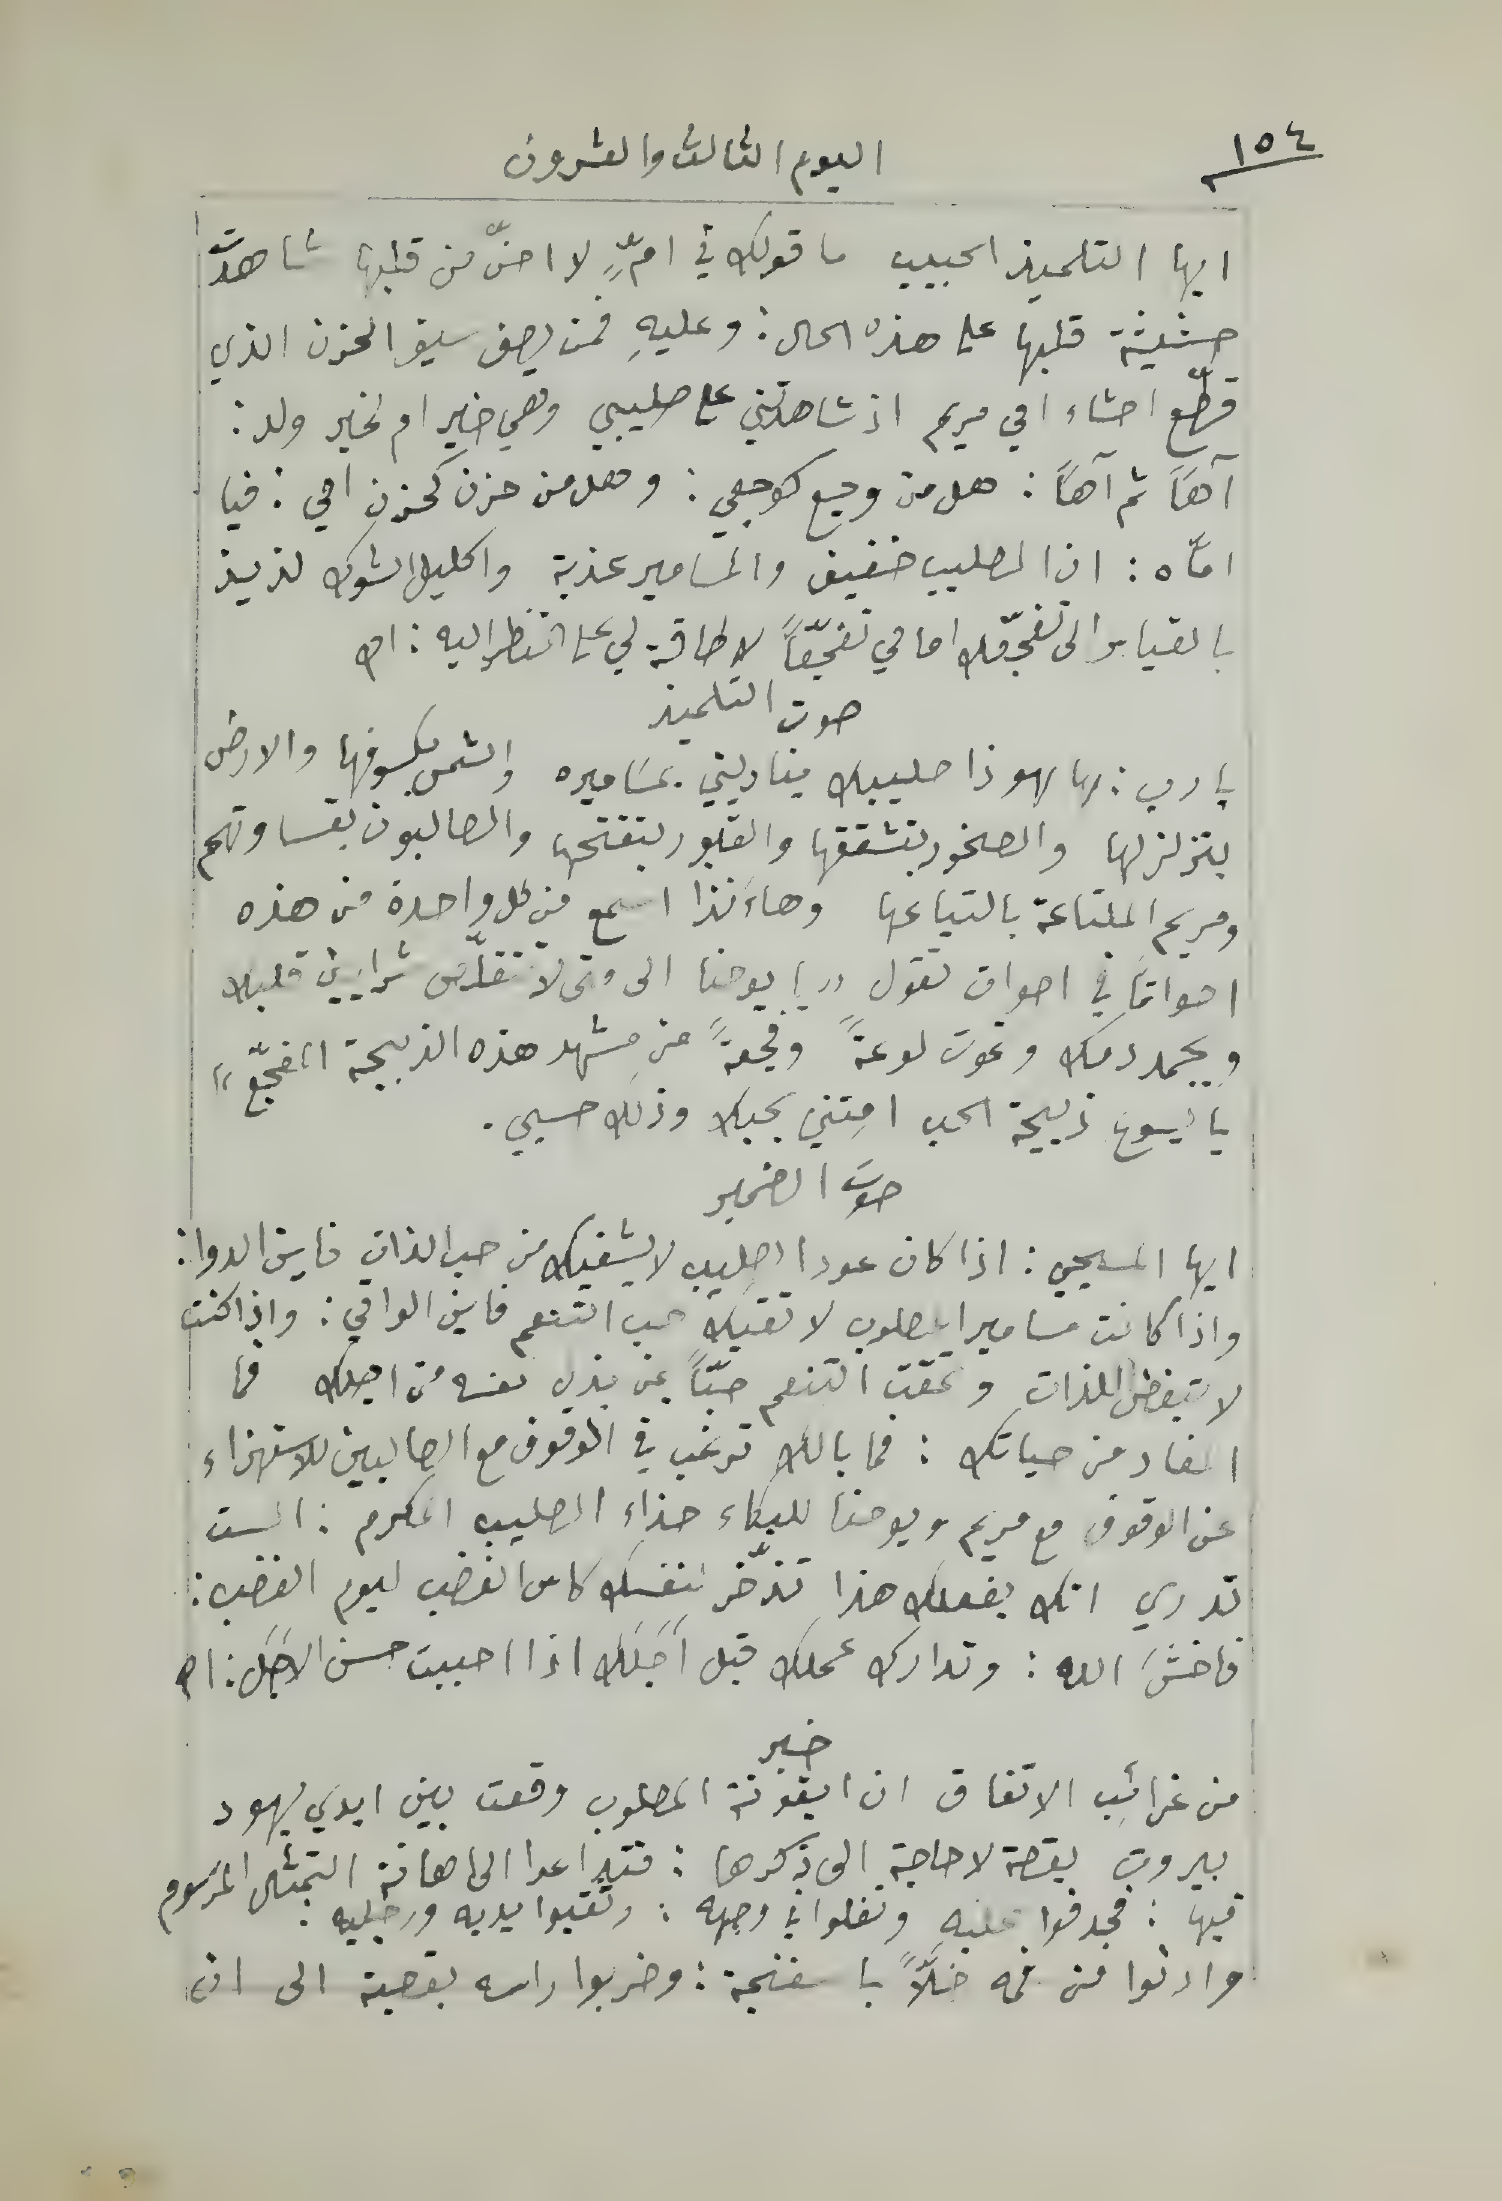 ١٥٤
اليوم الثالث والعشرون
ايها التلميذ الحبيب ما قولك في امٍّ لا احنّ من قلبها شاهدتْ
حشيشة قلبها على هذه الحال : وعليهِ فمن يصف سيف الحزن الذي
قطّع احشاء امي مريم اذ شاهدتني على صليبي وهي خير ام لخير ولد :
آهاً ثم آهاً : هل من وجع كوجعي : وهل من حزن كحزن امي : فيا
امّاه : ان الصليب خفيف والمسامير عذبة واكليل الشوك لذيذ
بالقياس الى تفجّعك امامي تفجّعاً لا طاقة لي على النظر اليه : اه
صوت التلميذ
يا رب : ها هوذا صليبك يناديني بمساميره والشمس بكسوفها والارض
بتزلزلها والصخور بتشققها والقبور بتفتحها والصالبون بقساوتهم
ومريم الملتاعة بالتياعها وهاءنذا اسمع من كل واحدة من هذه
اصواتاً في اصوات تقول «يا يوحنا الى متى لا تتقلّص شرايين قلبك
ويجمد دمك وتموت لوعةً وفجعةً من مشهد هذه الذبيحة المفجّع»
يا يسوع ذبيحة الحب امتني بحبك وذلك حسبي .
صوت الضمير
ايها المسيحي : اذا كان عود الصليب لا يشفيك من حب الذات فاين الدوا :
واذا كانت مسامير المصلوب لا تقيك حب التنعم فاين الواقي : واذا كنت
لا تبغض اللذات وتمقت التنعم حبّاً بمن بذل نفسه من اجلك فما
المفاد من حياتك : فما بالك ترغب في الوقوف مع الصالبين للاستهزاء
عن الوقوف مع مريم ويوحنا للبكاء حذاء الصليب المكرم : الست
تدري انك بفعلك هذا تذّخر لنفسك كاس الغضب ليوم الغضب :
فاخشَ الله : وتدارك عملك قبل اَجَلك اذا احببت حسن الاَجَل : اه
خبر
من غرائب الاتفاق ان ايقونة المصلوب وقعت بين ايدي يهود
بيروت بقصة لا حاجة الى ذكرها : فتداعوا الى اهانة التمثال المرسوم
فيها : فجدفوا عليه وتفلوا في وجهه : وثقبوا يديه ورجليه :
وادنوا من فمه خلّاً باسفنجة : وضربوا راسه بقصبة الى ان